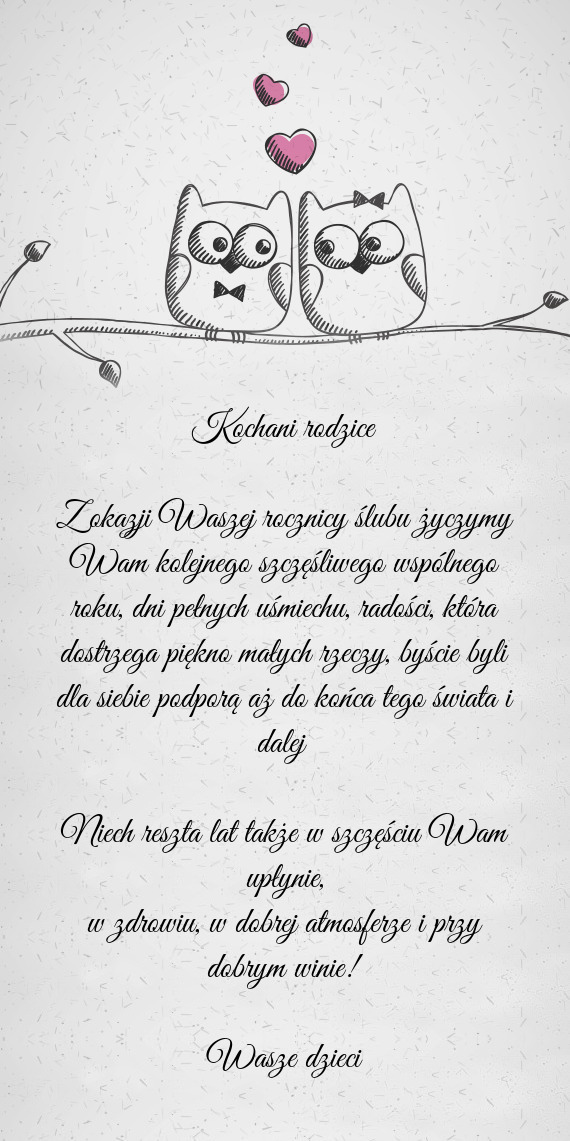 Kochani rodzice
Zokazji Waszej rocznicy ślubu życzymy
Wam kolejnego szczęśliwego wspólnego
roku, dni pełnych uśmiechu, radości, która
dostrzega piękno małych rzeczy, byście byli
dla siebie podporą aż do końca tego świata i
dalej
Niech reszta lat także w szczęściu Wam
upłynie,
w zdrowiu, w dobrej atmosferze i przy
dobrym winie!
Wasze dzieci